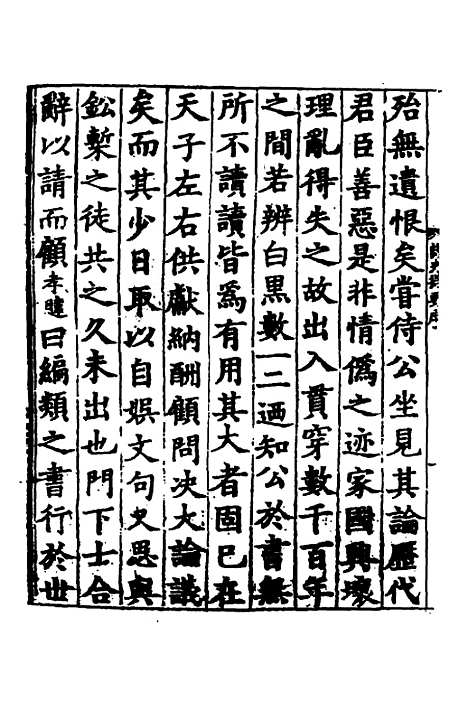 殆無遺恨矣嘗侍公坐見其論歷代
君臣善惡是非情僞之迹家國興壞
理亂得失之故出入貫穿數千百年
之間若辨白黑數一二迺知公於書無
所不讀讀皆爲有用其大者固已在
天子左右供獻納酬顧問决大論議
矣而其少日取以自娱文句史思與
鈆槧之徒共之久未出也門下士合
辭以請而顧孝曰編類之書行於丗